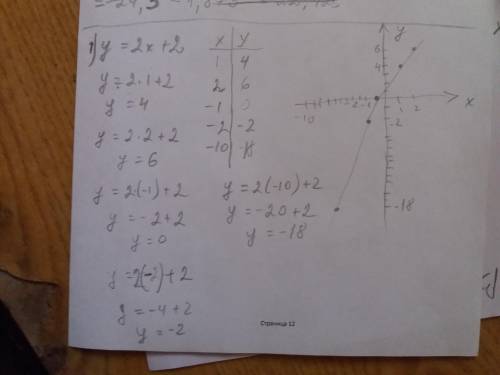 1) y = 2x + 2
y = 2·1 + 2
y = 4
y = 2·2 + 2
y = 6
y = 2·(-1) + 2
y = -2 + 2
y = 0
y = 2(-2) + 2
y = -4 + 2
y = -2
x y
1 4
2 6
-1 0
-2 -2
-10 -18
y = 2(-10) + 2
y = -20 + 2
y = -18
y
6
4
-10 -2 -1 1 2 x
-2
-18
Страница 12